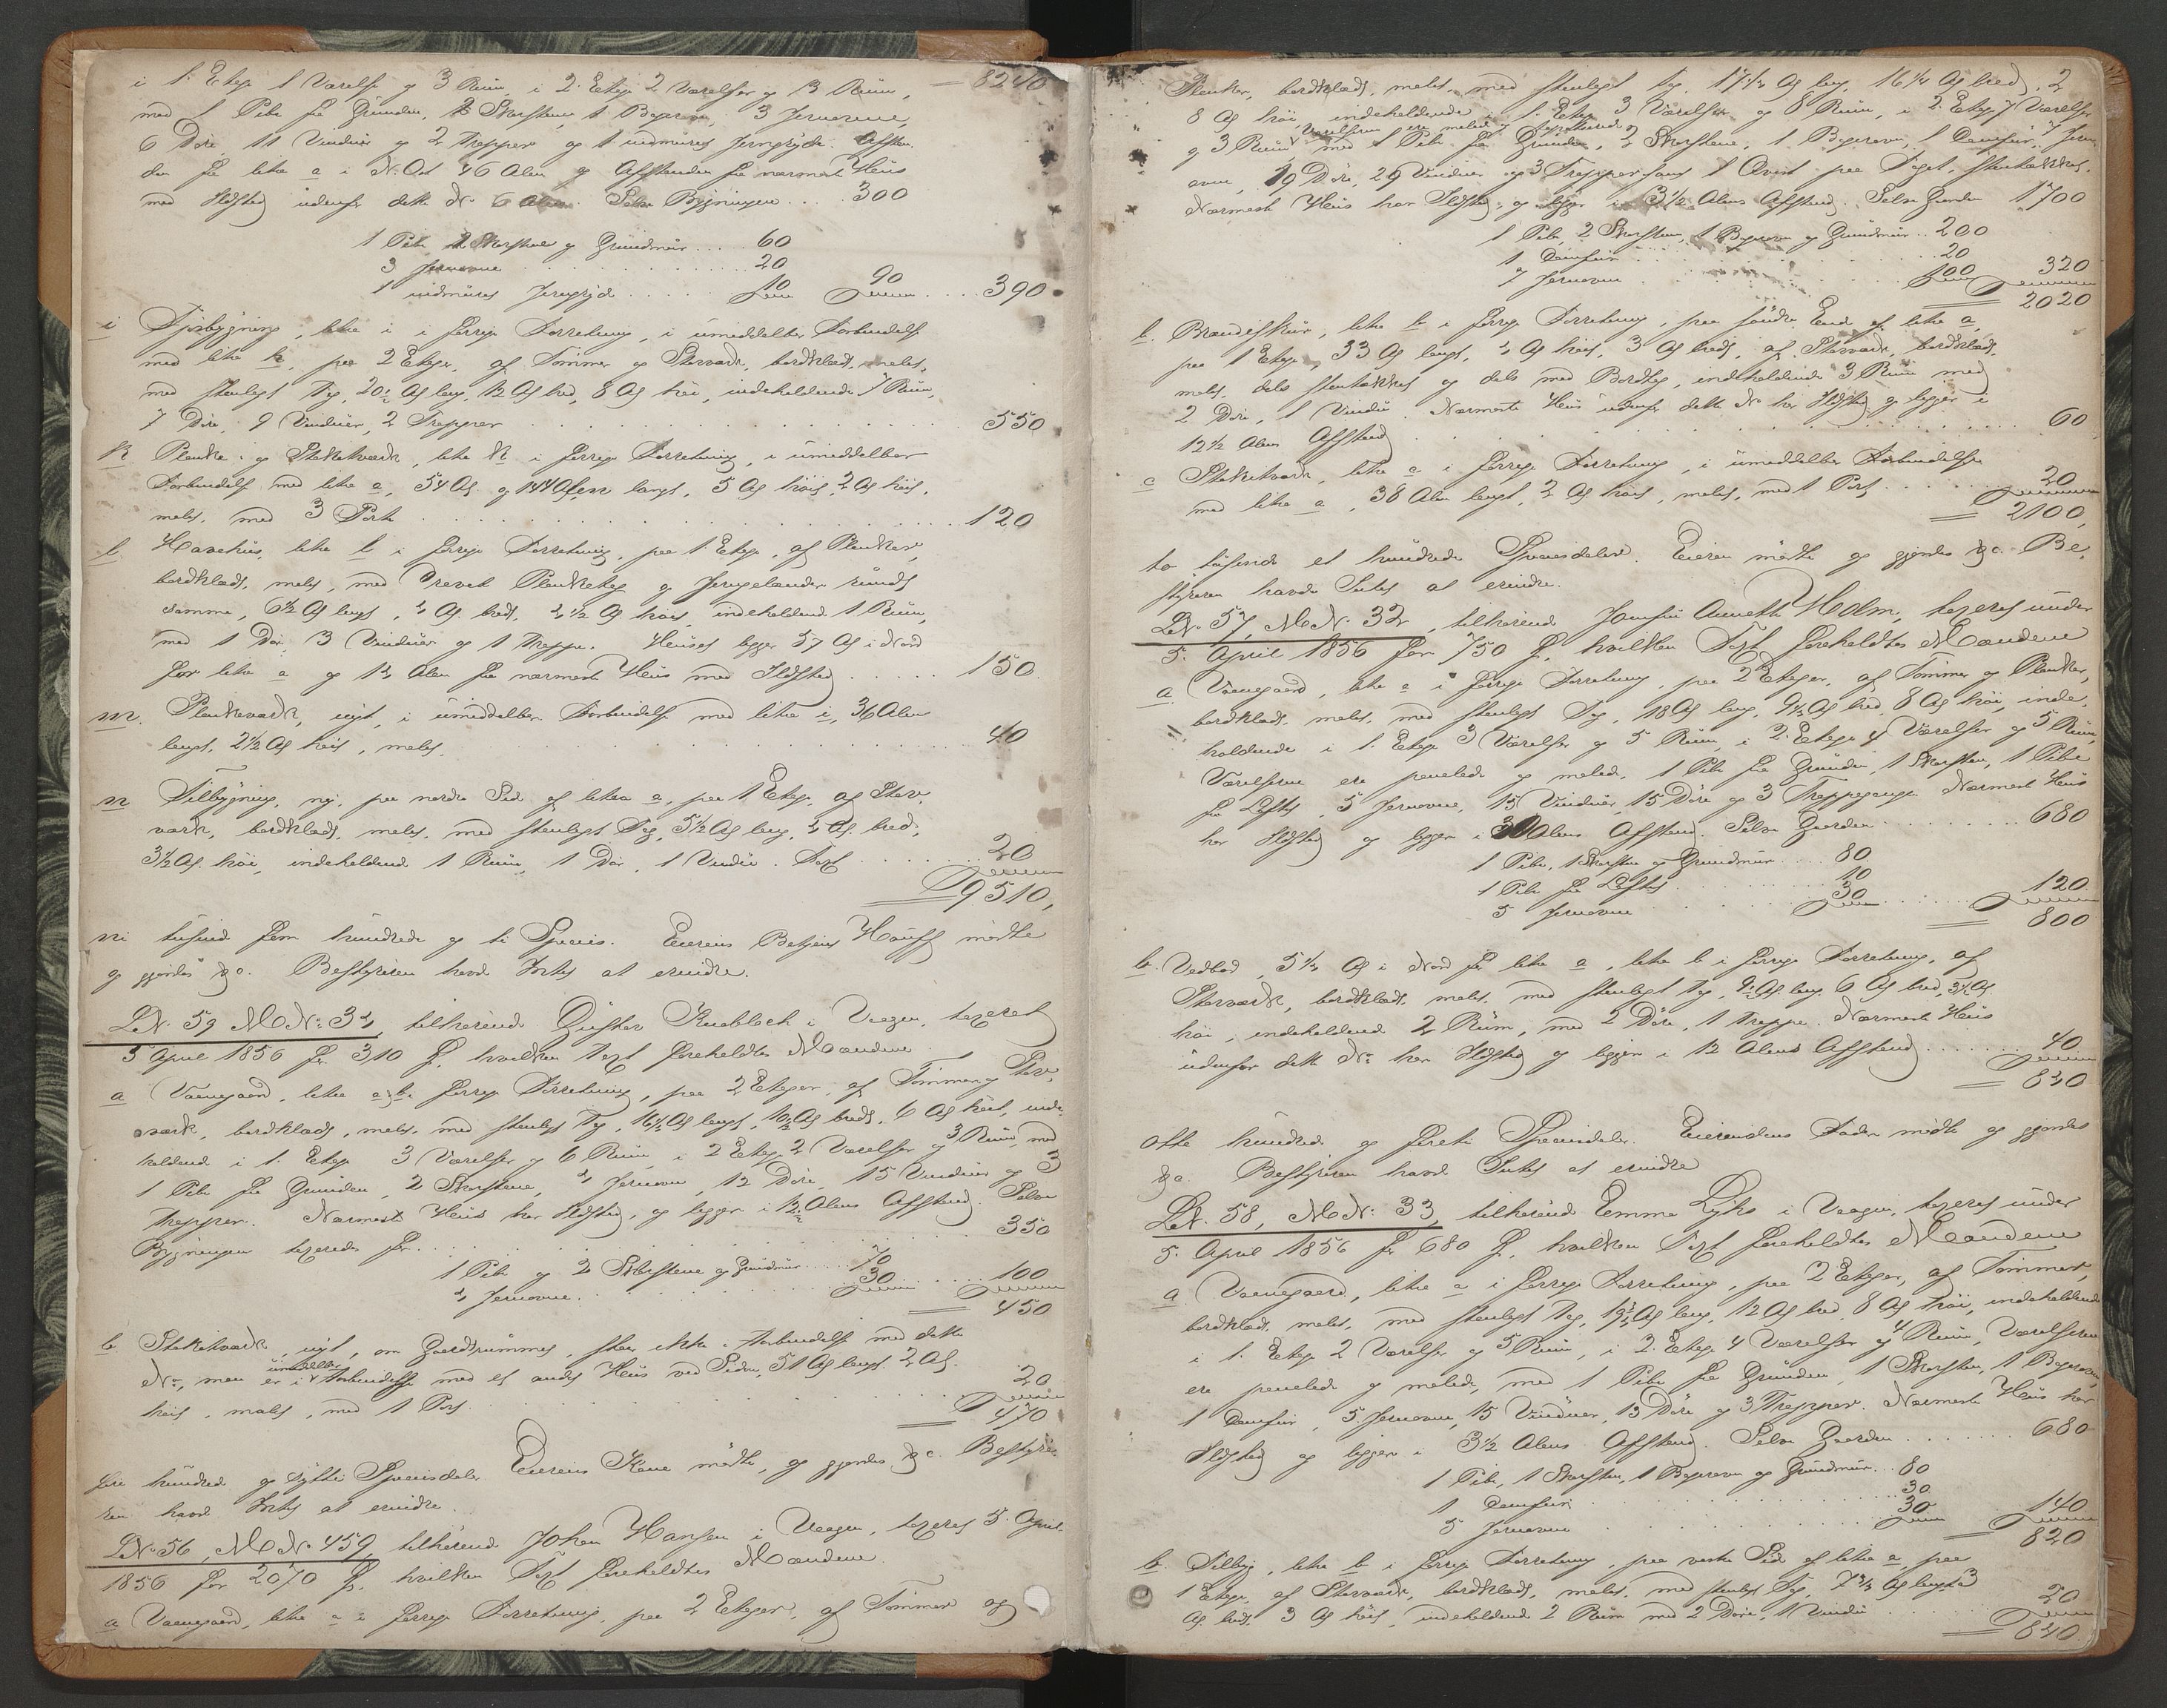 i 1. Etage 1 Værelse og 3 Rum, i 2. Etage 2 Værelser og 3 Rum, = 8240
med 1 Pibe fra Grunden, 2 Skorstene, 1 Bagerovn, 3 Jernovne,
6 Døre, 11 Vinduer og 2 Trapper og 1 indmuret Jerngryde. Afstan-
den fra litra a i N. Ost 46 Alen og Afstanden fra nærmeste Huus
med Ildsted udenfor dette No 6 Alen. Selve Bygningen . . 300
1 Pibe 2 Skorstene og Grundmuur . . . 60
3 Jernovne . . . 20
1 indmuret Jerngryde . . . 10 90 . . . 390
i Fjøsbygning, litra i i forrige Forretning, i umiddelbar Forbindelse
med litra h, paa 2 Etager, af Tømmer og Stavværk, bordklædt, malet,
med steenlagt Tag, 20½ Al. lang, 12 Al. bred, 8 Al. høi, indeholdende 7 Rum,
7 Døre, 9 Vinduer, 2 Trapper . . . 550
k Planke- og Stakitværk, litra k i forrige Forretning, i umiddelbar
Forbindelse med litra a, 54 Al. og 144 Alen langt, 5 Al. høit, 2 Al. høit,
malet, med 3 Porte . . . 120
l. Havehuus, litra l i forrige Forretning, paa 1 Etage, af Planker,
bordklædt, malet, med Planketag og rundt
samme, 6½ Al. langt, 4 Al. bredt, 4½ Al. høit, indeholdende 1 Rum,
med 1 Dør, 3 Vinduer og 1 Trappe. Huset ligger 57 Al. i Nord
for litra a og 13 Alen fra nærmeste Huus med Ildsted . . . 150
m. Plankeværk, nyt, i umiddelbar Forbindelse med litra i, 36 Alen
langt, 2½ Al. høit, malet. . . . 40
n Tilbygning, ny, paa nordre Side af litra a, paa 1 Etage, af Stav-
værk, bordklædt, malet, med steenlagt Tag, 5½ Al. lang, 4 Al. bred,
3½ Al. høi, indeholdende 1 Rum, 1 Dør, 1 Vindu. Taxt . . . 20
9510,
ni tusinde fem hundrede og ti Species. Eierens Betjent Hauff mødte
og gjordes &c. Bestyreren havde Intet at erindre.
L.N. 59 M.N: 34, tilhørende Gustav i Vaagen, taxeret
5 April 1856 for 310 , hvilken Taxt foreholdtes Mændene
a Vaanegaard, litra a, b i forrige Forretning, paa 2 Etager, af Tømmer og Stav-
værk, bordklædt, malet, med steenlagt Tag, 16½ Al. langt, 10½ Al. bredt, 6 Al. høit, inde-
holdende i 1. Etage 3 Værelser og 6 Rum, i 2 Etage 2 Værelser og 3 Rum, med
1 Pibe fra Grunden, 2 Skorstene, 4 Jernovne, 12 Døre, 15 Vinduer og 3
Trapper. Nærmeste Huus har Ildsted, og ligger i 12½ Alens Afstand. Selve
Bygningen taxeredes for . . . 350
1 Pibe og 2 Skorstene og Grundmuur . . . 70
4 Jernovne . . . 30 . . . 100
450
b Stakitværk, nyt, om Gaardsrummet, staar ikke i Forbindelse med dette
No, men er i umiddelbar Forbindelse med et andet Huus ved Siden, 51 Al. langt, 2 Al.
høit, malet, med 1 Port . . . 20
470
fire hundrede og sytti Speciesdaler. Eierens Kone mødte, og gjordes &c. Bestyre-
ren havde Intet at erindre.
L.No 56, M.No 459, tilhørende Johan Hansen i Vaagen, taxeret 5. April
1856 for 2070 , hvilken Taxt foreholdtes Mændene.
a Vaanegaard, litra a i forrige Forretning, paa 2 Etager, af Tømmer og
Planker, bordklædt, malet, med steenlagt Tag, 17½ Al. lang, 16¼ Al. bred, 2
8 Al. høi, indeholdende i 1. Etage 3 Værelser og 8 Rum, i 2. Etage 7 Værelser
og 3 Rum, Værelserne ere malede og med 1 Pibe fra Grunden, 2 Skorstene, 1 Bagerovn, 1 Damfur, 7 Jern-
ovne, 19 Døre, 29 Vinduer og 3 Trapper samt 1 Qvist paa Taget, steentækket.
Nærmeste Huus har Ildsted og ligger i 3½ Alens Afstand. Selve Gaarden 1700
1 Pibe, 2 Skorstene, 1 Bagerovn og Grundmuur . . 200
1 Damfuur . . . 20
7 Jernovne . . . 100 320
2020
b. Brændeskuur, litra b i forrige Forretning, paa søndre Ende af litra a,
paa 1 Etage, 33 Al. langt, 4 Al. høit, 3 Al. bredt, af Stavværk, bordklædt,
malet, dels steentækket og dels med Bordtag, indeholdende 3 Rum med
2 Døre, 1 Vindu. Nærmeste Huus udenfor dette No har Ildsted og ligger i
12½ Alens Afstand . . . 60
c Stakitværk, litra c i forrige Forretning, i umiddelbar Forbindelse
med litra a, 38 Alen langt, 2 Al. høit, malet, med 1 Port . . . 20
2100,
to tusinde et hundrede Speciesdaler. Eieren mødte og gjordes &c. Be-
styreren havde Intet at erindre.
L.N. 57, M.N. 32, tilhørende Jomfru Annette Holm, taxeret under
5. April 1856 for 750 , hvilken Taxt foreholdtes Mændene
a Vaanegaard, litra a i forrige Forretning, paa 2 Etager, af Tømmer og Planker,
bordklædt, malet, med steenlagt Tag, 18 Al. lang, 9½ Al. bred, 8 Al. høi, inde-
holdende i 1. Etage 3 Værelser og 5 Rum, i 2. Etage 4 Værelser og 5 Rum,
Værelserne ere panelede og malede, 1 Pibe fra Grunden, 1 Skorsten, 1 Pibe
fra Loftet, 5 Jernovne, 15 Vinduer, 15 Døre og 3 Trappegange. Nærmeste Huus
har Ildsted og ligger i Alens Afstand. Selve Gaarden . . . 680
1 Pibe, 1 Skorsten og Grundmuur . . . 80
1 Pibe fra Loftet . . . 10
5 Jernovne . . . 30 . . . 120
800
b. Vedbod, 5¼ Al. i Nord for litra a, litra b i forrige Forretning, af
Stavværk, bordklædt, malet, med steenlagt Tag, 9½ Al. lang, 6 Al. bred, 3½ Al.
høi, indeholdende 2 Rum, med 2 Døre, 1 Trappe. Nærmeste Huus
udenfor dette No har Ildsted og ligger i 12 Alens Afstand . . . 40
840
otte hundrede og førети Speciesdaler. Eierindens Fader mødte og gjordes
&c. Bestyreren havde Intet at erindre
L.N. 58, M.N: 33, tilhørende Emma i Vaagen, taxeret under
5. April 1856 for 680 , hvilken Taxt foreholdtes Mændene
a Vaanegaard, litra a i forrige Forretning, paa 2 Etager, af Tømmer,
bordklædt, malet, med steenlagt Tag, 19¾ Al. lang, 12 Al. bred, 8 Al. høi, indeholdende
i 1. Etage 2 Værelser og 5 Rum, i 2. Etage 4 Værelser og 4 Rum, Værelserne
ere panelede og malede, med 1 Pibe fra Grunden, 1 Skorsten, 1 Bagerovn,
1 Damfuur, 5 Jernovne, 15 Vinduer, 13 Døre og 3 Trapper. Nærmeste Huus har
Ildsted og ligger i 3½ Alens Afstand. Selve Gaarden . . . 680
1 Pibe, 1 Skorsten, 1 Bagerovn og Grundmuur . . 80
1 Damfuur . . . 30
5 Jernovne . . . 30 140
820
b. Tilbyg, litra b i forrige Forretning, paa vestre Side af litra a, paa
1 Etage, af Stavværk, bordklædt, malet, med steenlagt Tag, 7¾ Al. langt, 3
Al. bredt, 3 Al. høit, indeholdende 2 Rum med 2 Døre, 1 Vindu 20
840